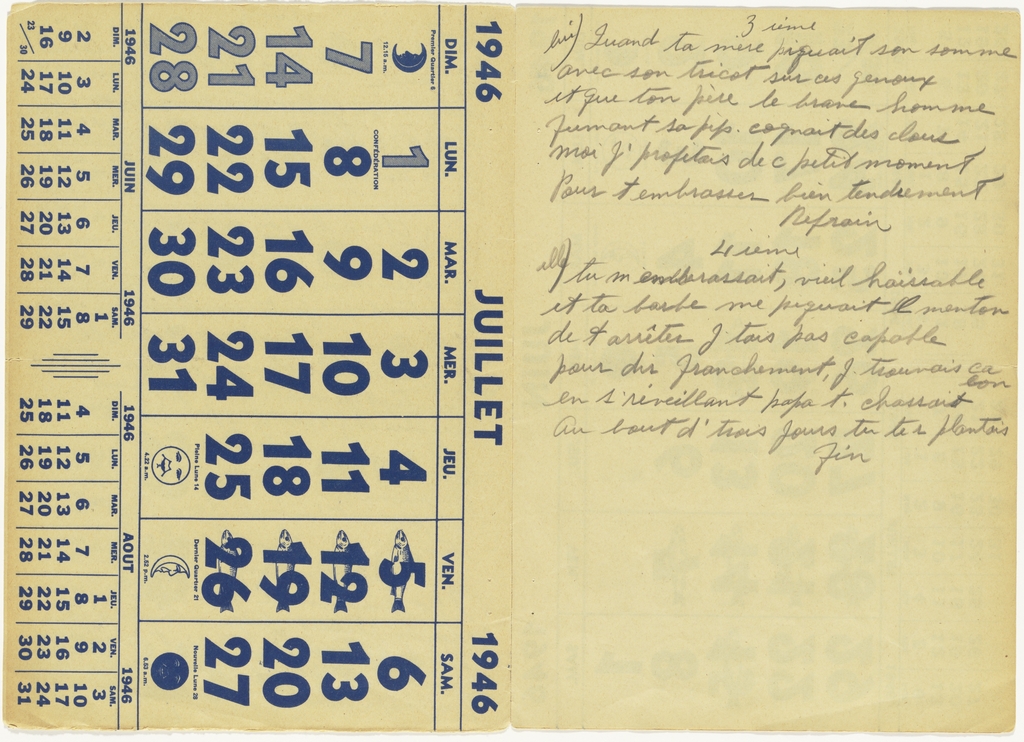 1946 JUILLET 1946
DIM. LUN. MAR. MER. JEU. VEN. SAM.
1 2 3 4 5 6
CONFÉDÉRATION
Premier Quartier 6
12.15 a.m.
7 8 9 10 11 12 13
14 15 16 17 18 19 20
21 22 23 24 25 26 27
28 29 30 31
Pleine Lune 14
4.22 a.m.
Dernier Quartier 21
2.52 p.m.
Nouvelle Lune 28
6.53 a.m.
1946 JUIN 1946
DIM. LUN. MAR. MER. JEU. VEN. SAM.
1
2 3 4 5 6 7 8
9 10 11 12 13 14 15
16 17 18 19 20 21 22
23/30 24 25 26 27 28 29
1946 AOUT 1946
DIM. LUN. MAR. MER. JEU. VEN. SAM.
1 2 3
4 5 6 7 8 9 10
11 12 13 14 15 16 17
18 19 20 21 22 23 24
25 26 27 28 29 30 31
3 ième
lui) Quand ta mère piquait son somme
avec son tricot sur ces genoux
et que ton père le brave homme
fumant sa pip. cognait des clous
moi j' profitais de c petit moment
Pour t'embrasser bien tendrement
Refrain
4 ième
elle) tu m'embrassait, vieil haïssable
et ta barbe me piquait l menton
de t arrêter j' tais pas capable
pour dir franchement, j. trouvais ca
bon
en s'réveillant papa t. chassait
Au bout d' trois jours tu ter plantais
Fin